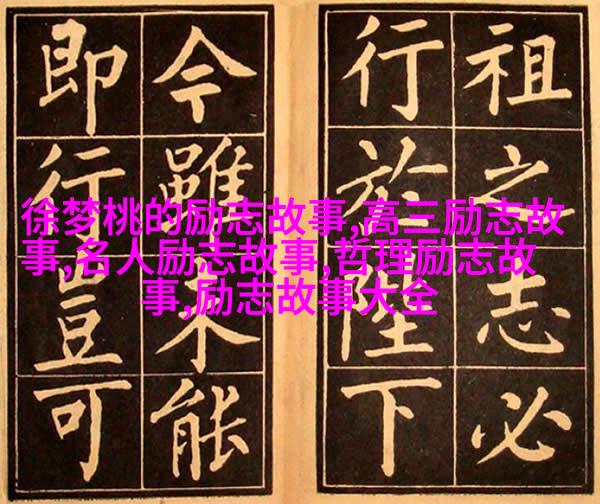 祖之志必
行於陛下
今雖未能
即行豈可
徐梦桃的励志故事,高三励志故
事,名人励志故事,哲理励志故
事,励志故事大全